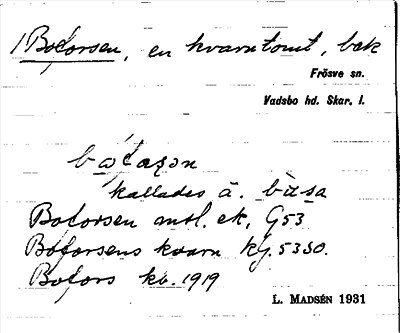 1 Boforsen, en kvarntomt, bek
Frösve sn.
Vadsbo hd. Skar. l.
kallades ä. bùsa
Boforsen ansl. ek, G53
Boforsens kvarn Kg. 53SO.
Bofors kv. 1919
L. MADSÉN 1931